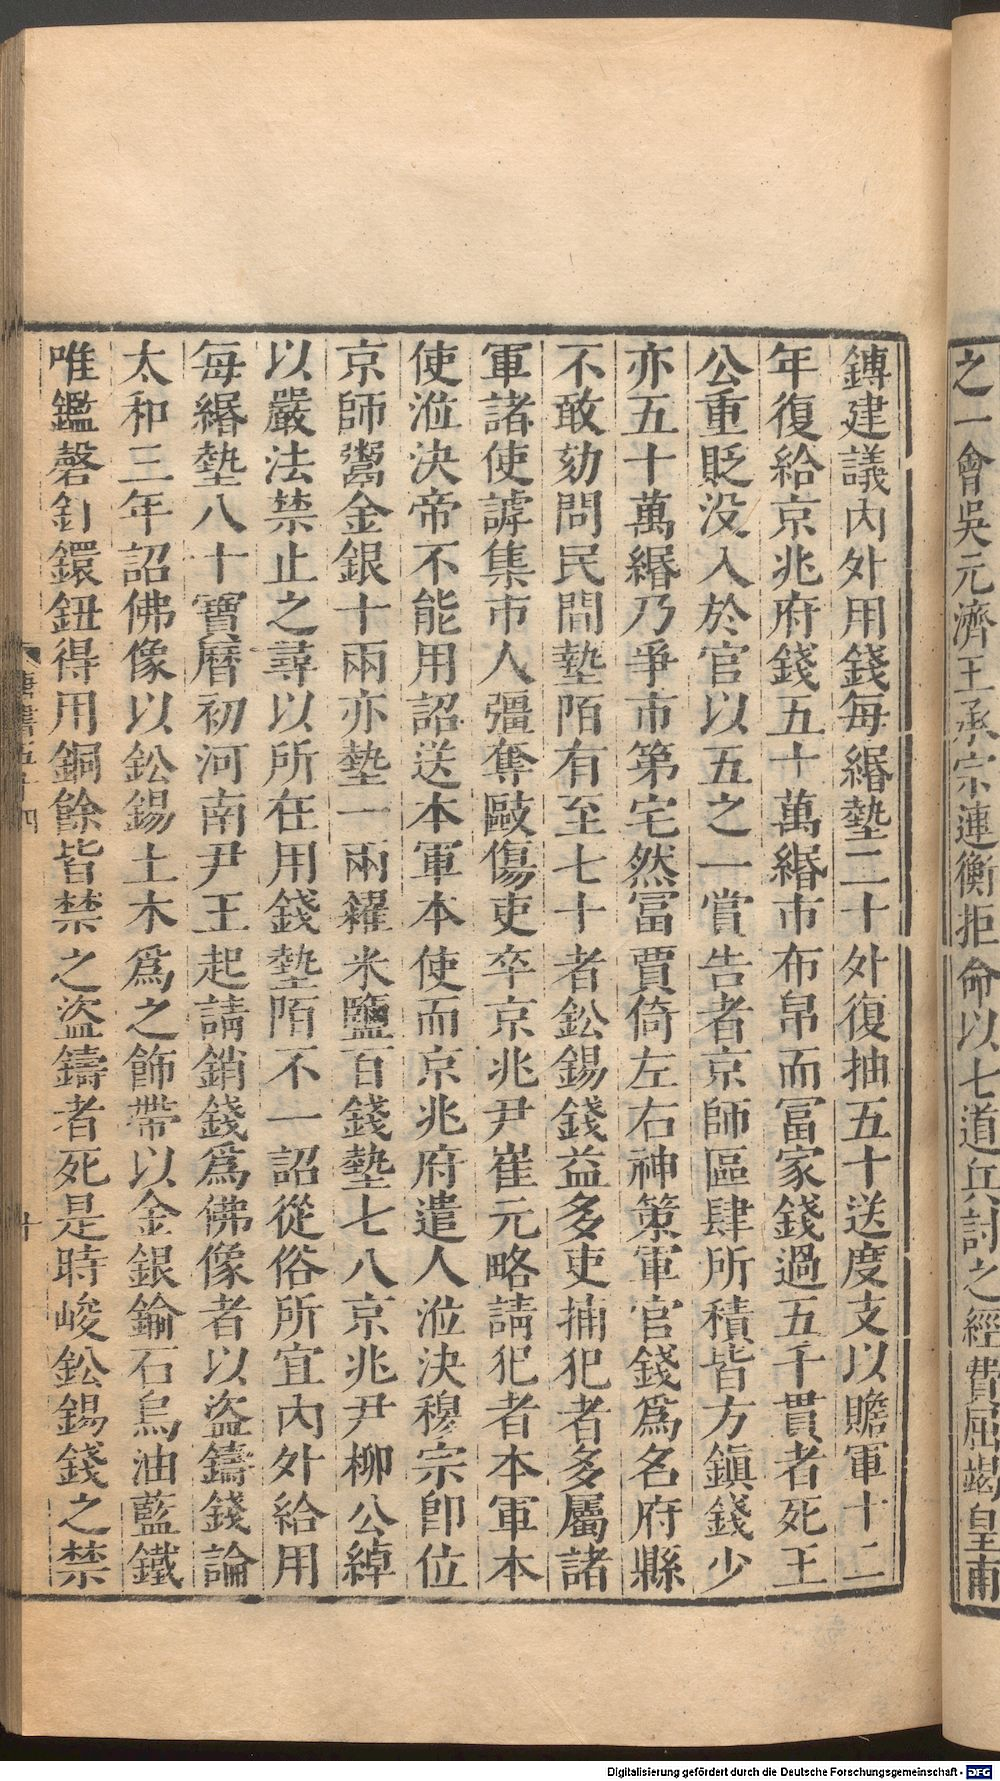 之一會吳元濟王承宗連衡拒命以七道兵討之經費屈竭皇甫
鎛建議內外用錢每緡墊二十外復抽五十送度支以贍軍十二
年復給京兆府錢五十萬緡市布帛而冨家錢過五千貫者死王
公重貶没入於官以五之一賞告者京師區肆所積皆方鎮錢少
亦五十萬緡乃爭市第宅然冨賈倚左右神策軍官錢爲名府縣
不敢劾問民間墊陌有至七十者鈆錫錢益多吏捕犯者多屬諸
軍諸使謼集市人彊奪毆傷吏卒京兆尹崔元略請犯者本軍本
使涖決帝不能用詔送本軍本使而京兆府遣人涖決穆宗卽位
京師鬻金銀十兩亦墊一兩糴米鹽百錢墊七八京兆尹柳公綽
以嚴法禁止之尋以所在用錢墊陌不一詔從俗所宜內外給用
每緡墊八十寶曆初河南尹王起請銷錢爲佛像者以盜鑄錢論
太和三年詔佛像以鈆錫土木爲之飾帶以金銀鍮石烏油藍鐵
唯鑑磬釘鐶鈕得用銅餘皆禁之盜鑄者死是時峻鈆錫錢之禁
唐書五十四
十
Digitalisierung gefördert durch die Deutsche Forschungsgemeinschaft - DFG